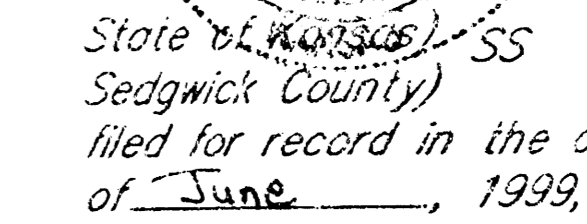 State of Kansas) SS
Sedgwick County)
filed for record in the
of June, 1999,